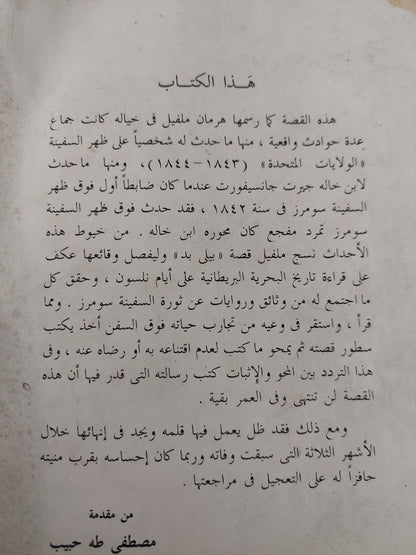 هـذا الكتـاب
هذه القصة كما رسمها هرمان ملفيل فى خياله كانت جماع
عدة حوادث واقعية ، منها ما حدث له شخصياً على ظهر السفينة
«الولايات المتحدة» (١٨٤٣–١٨٤٤)، ومنها ما حدث
لابن خاله جيرت جانسيفورت عندما كان ضابطاً أول فوق ظهر
السفينة سومرز فى سنة ١٨٤٢ ، فقد حدث فوق ظهر السفينة
سومرز تمرد مفجع كان محوره ابن خاله . من خيوط هذه
الأحداث نسج ملفيل قصة «بيلى بد» وليفصل وقائعها عكف
على قراءة تاريخ البحرية البريطانية على أيام نلسون ، وحقق كل
ما اجتمع له من وثائق وروايات عن ثورة السفينة سومرز . ومما
قرأ ، واستقر فى وعيه من تجارب حياته فوق السفن أخذ يكتب
سطور قصته ثم يمحو ما كتب لعدم اقتناعه به أو رضاه عنه ، وفى
هذا التردد بين المحو والإثبات كتب رسالته التى قدر فيها أن هذه
القصة لن تنتهى وفى العمر بقية .
ومع ذلك فقد ظل يعمل فيها قلمه ويجد فى إنهائها خلال
الأشهر الثلاثة التى سبقت وفاته وربما كان إحساسه بقرب منيته
حافزاً له على التعجيل فى مراجعتها .
من مقدمة
مصطفى طه حبيب